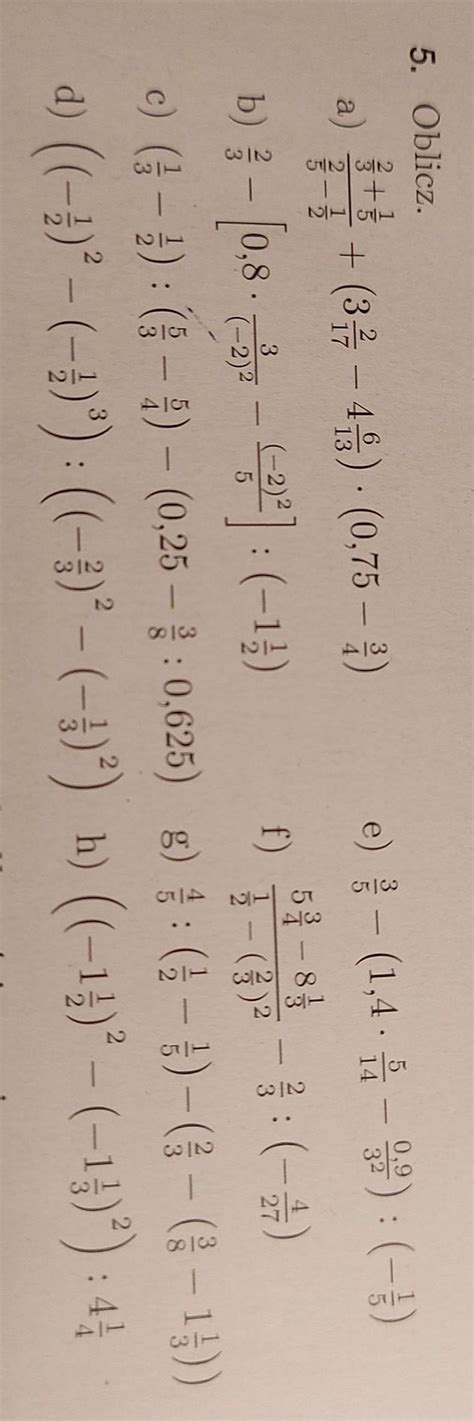 5. Oblicz.
a) \frac{\frac{2}{3}+\frac{1}{5}}{\frac{2}{5}-\frac{1}{2}} + (3\frac{2}{17} − 4\frac{6}{13}) · (0,75 − \frac{3}{4})
b) \frac{2}{3} − [0,8 · \frac{3}{(−2)^2} − \frac{(−2)^2}{5}] : (−1\frac{1}{2})
c) (\frac{1}{3} − \frac{1}{2}) : (\frac{5}{3} − \frac{5}{4}) − (0,25 − \frac{3}{8} : 0,625)
d) ((−\frac{1}{2})^2 − (−\frac{1}{2})^3) : ((−\frac{2}{3})^2 − (−\frac{1}{3})^2)
e) \frac{3}{5} − (1,4 · \frac{5}{14} − \frac{0,9}{3^2}) : (−\frac{1}{5})
f) \frac{5\frac{3}{4} − 8\frac{1}{3}}{\frac{1}{2} − (\frac{2}{3})^2} − \frac{2}{3} : (−\frac{4}{27})
g) \frac{4}{5} : (\frac{1}{2} − \frac{1}{5}) − (\frac{2}{3} − (\frac{3}{8} − 1\frac{1}{3}))
h) ((−1\frac{1}{2})^2 − (−1\frac{1}{3})^2) : 4\frac{1}{4}